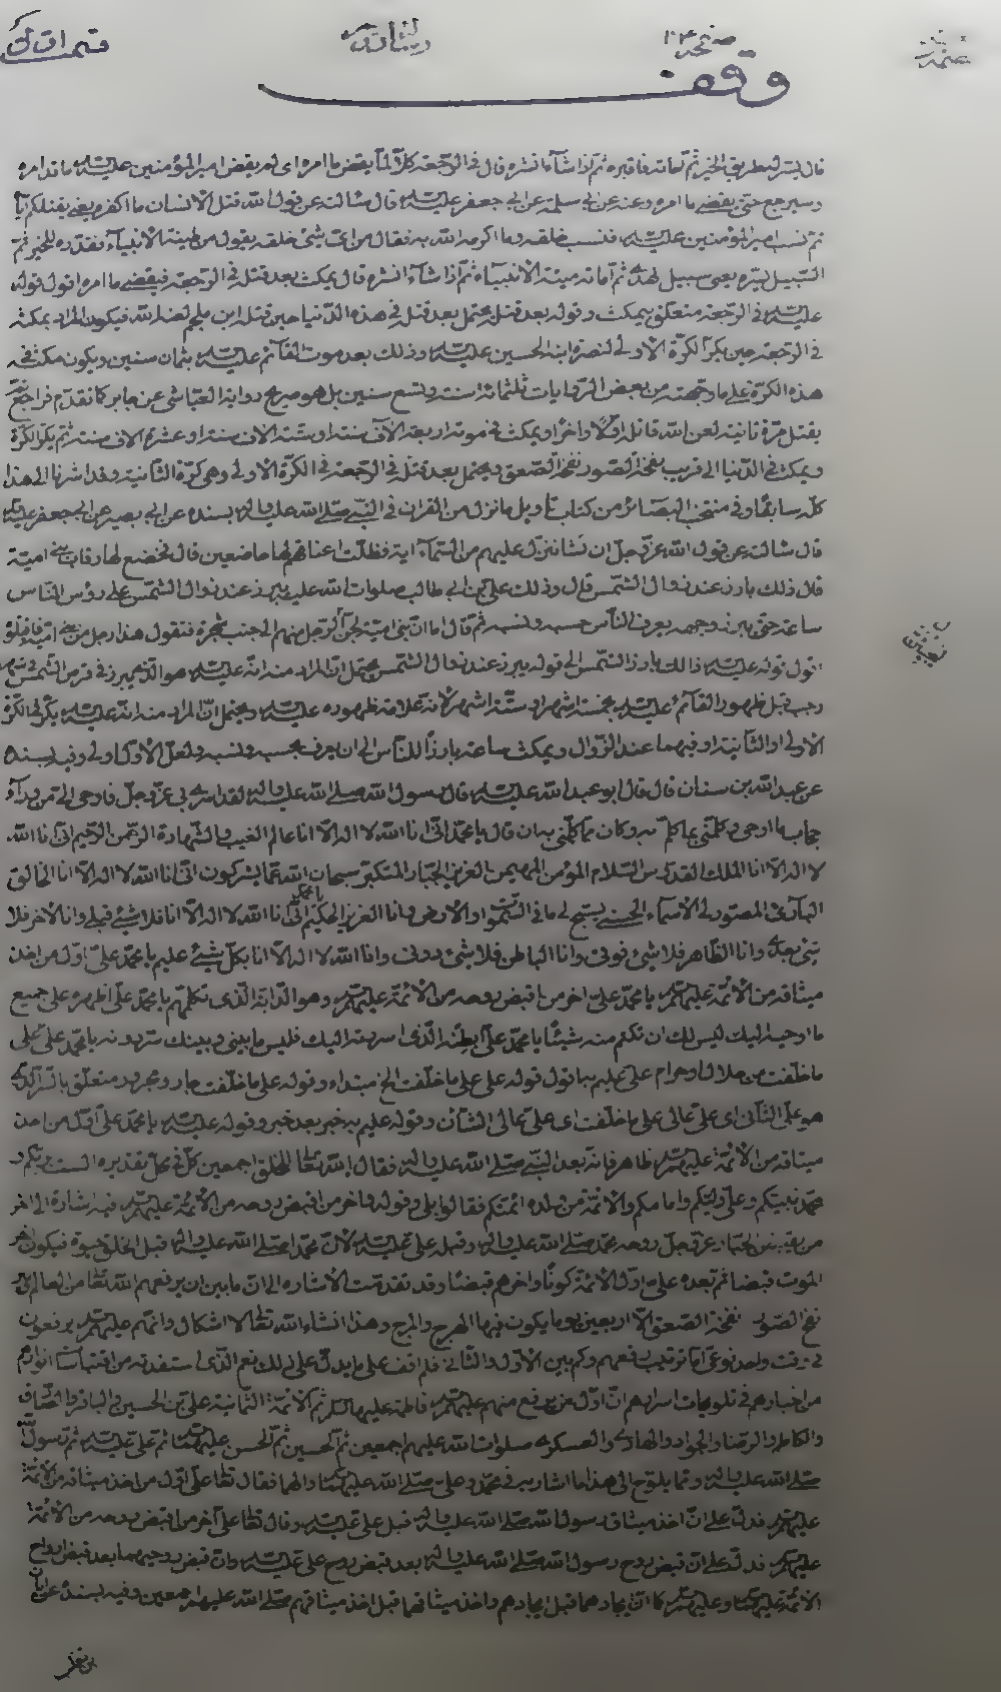 صفحه ١٠٣
وقف
قال يسر له طريق الخير ثم اماته فاقبره ثم اذا شآء انشره قال في الرجعة كلا لمّا يقض ما امره اى لم يقض امير المؤمنين عليه السلام ما قد امره
وسيرجع حتى يقضى ما امره وعنه عن ابي سلمة عن ابي جعفر عليه السلام قال سألته عن قول الله قتل الانسان ما اكفره يعنى بقتلكم ايّاه
ثم نسب امير المؤمنين عليه السلام فنسب خلقه وما اكرمه الله به فقال من اىّ شئ خلقه يقول من طينة الانبيآء خلقه فقدره للخير ثم
السّبيل يسّره يعنى سبيل الهدى ثم اماته ميتة الانبيآء ثم اذا شآء انشره قال يمكث بعد قتله في الرجعة فيقضى ما امره اقول قوله
عليه السلام في الرجعة متعلق بيمكث وقوله بعد قتله يحتمل بعد قتله في هذه الدّنيا حين قتله ابن ملجم لعنه الله فيكون المراد بمكثه
في الرجعة حين يكرّ الكرّة الاولى لنصرة ابنه الحسين عليه السلام وذلك بعد موت القآئم عليه السلام بثمان سنين ويكون مكثه في
هذه الكرّة على ما وجهته من بعض الروايات ثلثمائة سنة وتسع سنين بل هو صريح رواية العيّاشى عن جابر كما تقدم فراجع ثم
يقتل مرّة ثانية لعن الله قاتله اوّلا واخرا ويمكث في موته اربعة الآف سنة او ستة الاف سنة او عشرة الاف سنة ثم يكرّ الكرّة
ويمكث في الدّنيا الى قريب نفخة الصّور نفخة الصّعق ويحتمل بعد قتله في الرجعة في الكرّة الاولى وهى كرّة الثانية وقد اشرنا الى هذا
كلّه سابقًا وفي منتخب البصائر من كتاب تأويل ما نزل من القران في النّبى صلى الله عليه واله بسنده عن ابي بصير عن ابي جعفر عليه السلام
قال سألته عن قول الله عزّ وجلّ ان نشأ ننزل عليهم من السّمآء اية فظلت اعناقهم لها خاضعين قال تخضع لها رقاب بنى اميّة
قال ذلك بارز عند زوال الشّمس قال وذلك علىّ بن ابي طالب صلوات الله عليه يبرز عند زوال الشّمس على رؤس النّاس
ساعة حتى يبرز وجهه يعرف النّاس حسبه ونسبه ثم قال اما انّ بنى اميّة ليختبئنّ الرّجل منهم الى جنب شجرة فتقول هذا رجل من بنى اميّة فاقتلوه
اقول قوله عليه السلام ذلك بارز الشّمس الى قوله يبرز عند زوال الشّمس يحتمل انّ المراد منه انّه عليه السلام هو الذى يبرز في قرص الشّمس في شهر
رجب قبل ظهور القآئم عليه السلام بخمسة اشهر او ستّة اشهر لانه علامة ظهوره عليه السلام ويحتمل انّ المراد منه انّه عليه السلام يكرّ في الكرّة
الاولى او الثانية او فيهما عند الزّوال ويمكث ساعة بارزًا للنّاس الى ان يعرف بحسبه ونسبه ولعلّ الاوّل اولى وفيه بسنده
عن عبد الله بن سنان قال قال ابو عبد الله عليه السلام قال رسول الله صلى الله عليه واله لقد اسرى بى عزّ وجلّ فاوحى الىّ من ورآء
حجاب ما اوحى وكلّمنى بما كلّم به وكان ممّا كلّمنى به ان قال يا محمّد انّى انا الله لا اله الّا انا عالم الغيب والشّهادة الرّحمن الرّحيم انّى انا الله
لا اله الّا انا الملك القدّوس السّلام المؤمن المهيمن العزيز الجبّار المتكبّر سبحان الله عمّا يشركون انّى انا الله لا اله الّا انا الخالق
البارئ المصوّر لى الاسماء الحسنى يسبّح لى ما في السّموات والارض وانا العزيز الحكيم يا محمد انّى انا الله لا اله الّا انا فلا شئ قبلى وانا الاخر فلا
شئ بعدى وانا الظّاهر فلا شئ فوقى وانا الباطن فلا شئ دونى وانا الله لا اله الّا انا بكلّ شئ عليم يا محمّد علىّ اوّل من اخذ
ميثاقه من الائمّة عليهم السلام يا محمّد علىّ اخر من اقبض روحه من الائمّة عليهم السلام وهو الدّابة الّذى تكلّمهم يا محمّد علىّ اظهره على جميع
ما اوحيه اليك ليس لك ان تكتم منه شيئًا يا محمّد علىّ ابطنه الّذى اسررته اليك فليس ما بينى وبينك ستر دونه يا محمّد علىّ علىّ
ما خلقت من حلال او حرام علىّ عليم به اقول قوله علىّ على ما خلقت الخ مبتداء وقوله على ما خلقت جار ومجرور متعلّق
هو علىّ الثّانى اى علىّ عالى على ما خلقت اى علىّ عالى الشّأن وقوله عليم به خبر بعد خبر وقوله عليه السلام يا محمّد علىّ اوّل من اخذ
ميثاقه من الائمّة عليهم السلام ظاهر فانّه بعد النّبى صلى الله عليه واله فقال الله تعالى للخلق اجمعين كلّ في محلّ تقديره الست بربّكم و
محمّد نبيّكم وعلىّ وليّكم وامامكم والائمّة من ولده ائمّتكم فقالوا بلى وقوله واخر من اقبض روحه من الائمّة عليهم السلام فيه اشارة الى اخر
من يقبض الجبّار عزّ وجلّ روحه محمّد صلى الله عليه واله وقبله علىّ عليه السلام لانّ محمّدا صلى الله عليه واله قبل الخلق حيوة فيكون اخر
الموت قبضا ثم بعده علىّ اوّل الائمّة كونًا واخرهم قبضًا وقد تقدّمت الاشارة الى انّ ما بين ان يرفعهم الله تعالى من العالم الى
نفخ الصّور نفخة الصّعق الّا اربعين يوما يكون فيها الهرج والمرج وهذا انشاء الله تعالى لا اشكال وانّهم عليهم السلام يرفعون
في وقت واحد نوعى امّا ترتيب رفعهم وكم بين الاوّل والثانى فلم اقف على ما يدلّ على ذلك نعم الّذى استفدته من اقتباسات انوارهم
من اخبارهم في تلويحات اسرارهم انّ اوّل من يرفع منهم عليهم السلام فاطمة عليها السلام ثم الائمّة الثّمانية علىّ بن الحسين والباقر والصّادق
والكاظم والرّضا والجواد والهادى والعسكرى صلوات الله عليهم اجمعين ثم الحسين ثم الحسن عليهما السلام ثم علىّ عليه السلام ثم رسول الله
صلى الله عليه واله وممّا يلوّح الى هذا ما اشار به في محمّد وعلى صلى الله عليهما والهما فقال تعالى علىّ اوّل من اخذ ميثاقه من الائمّة
عليهم السلام فدلّ على انّ اخذ ميثاق رسول الله صلى الله عليه واله قبل علىّ عليه السلام وقال تعالى علىّ آخر من اقبض روحه من الائمّة
عليهم السلام فدلّ على انّ قبض روح رسول الله صلى الله عليه واله بعد قبض روح علىّ عليه السلام وانّ قبض روحيهما بعد قبض ارواح
الائمّة عليهما وعليهم السلام كما انّ ايجادهما قبل ايجادهم واخذ ميثاقهما قبل اخذ ميثاقهم صلى الله عليهم اجمعين وفيه بسنده عن ابان